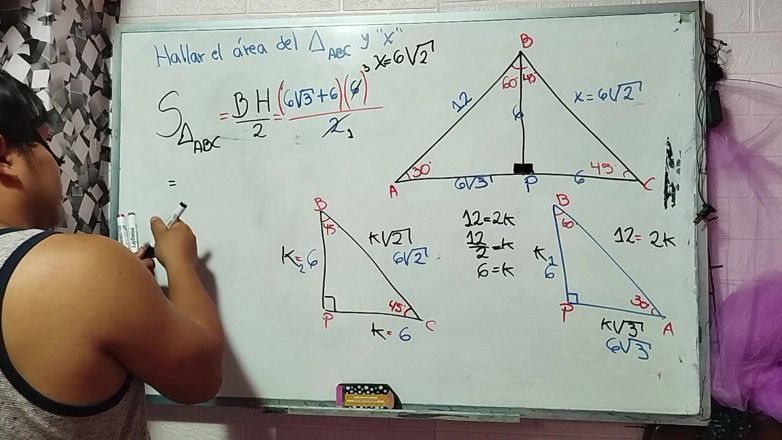 Hallar el área del △ABC y "x"
x=6√2
S△ABC = B H / 2 = (6√3+6)(6)3 / 2 1
=
B
60° 45°
12
6
x=6√2
30°
45°
A
6√3
P
6
C
B
45°
K=6
K√2
6√2
45°
P
K=6
C
12=2K
12/2=K
6=K
B
60°
K
6
12=2K
30°
P
K√3
A
6√3